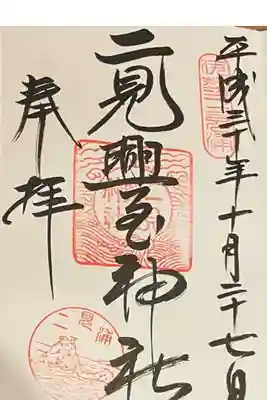 平成三十年十月二十七日
二見興玉神社
奉拝
二見浦